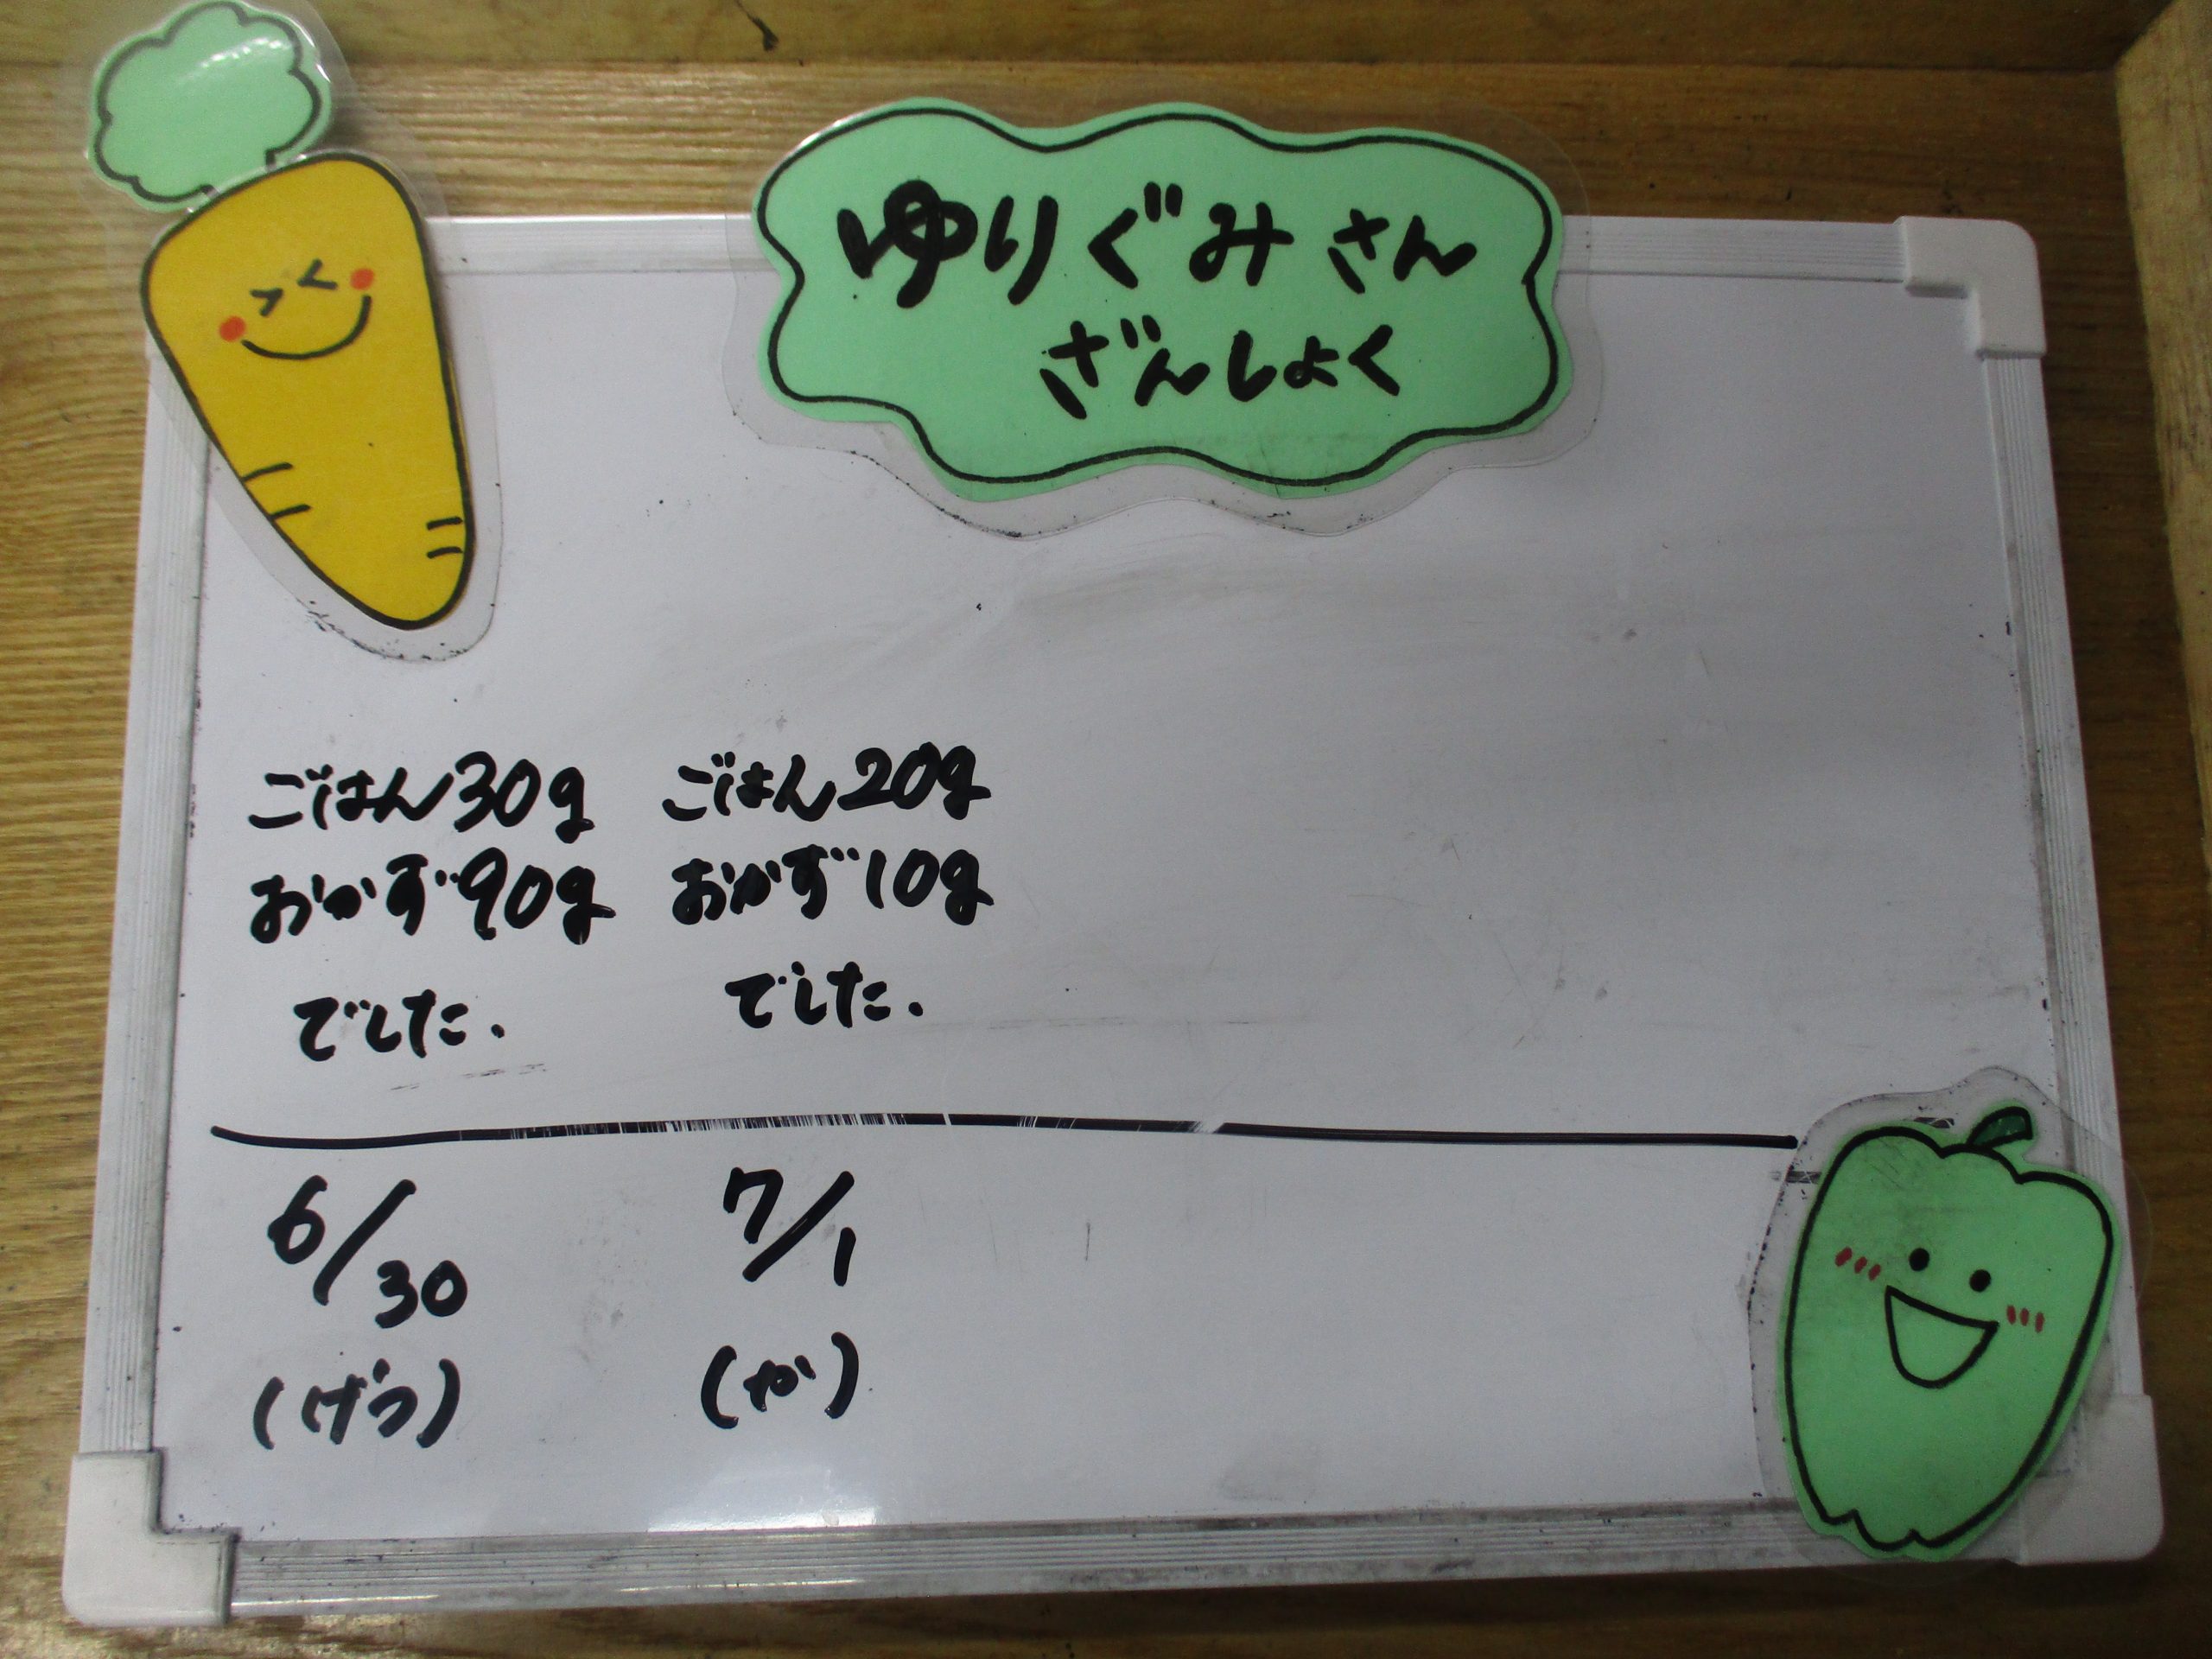 ゆりぐみさん
ざんしょく
ごはん30g
おかず90g
でした.
ごはん20g
おかず10g
でした.
6/30
(げつ)
7/1
(か)